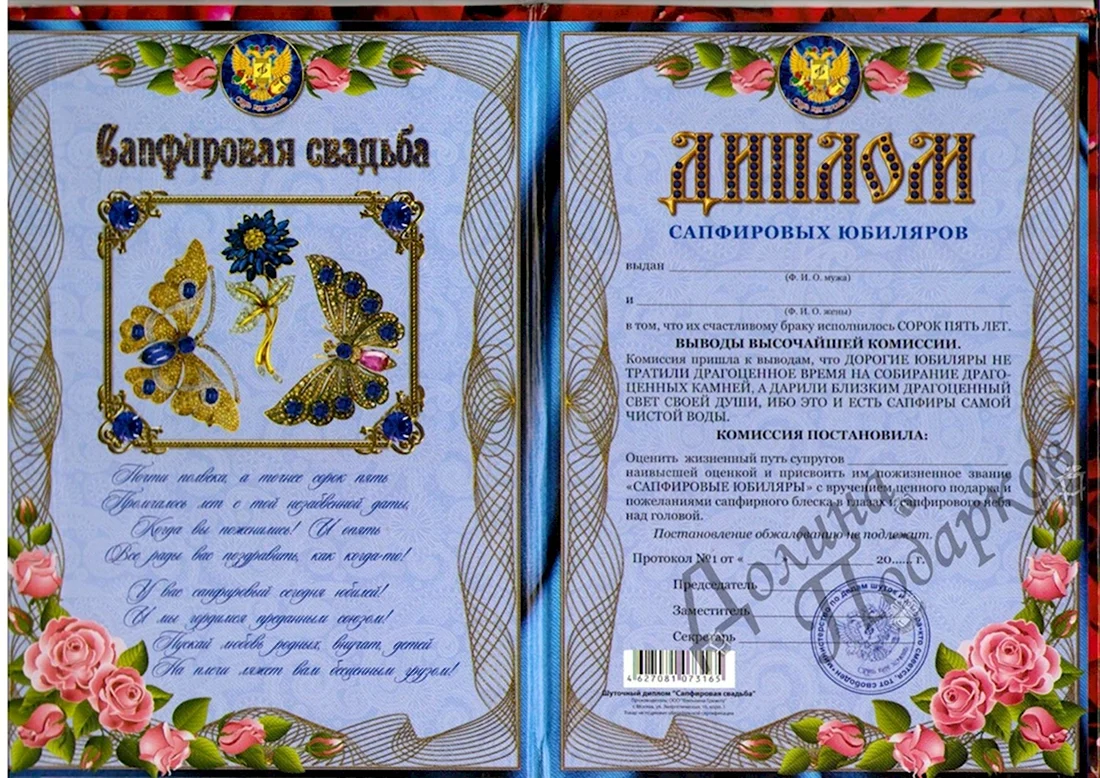 Сапфировая свадьба
Почти полвека, а точнее сорок пять
Промчалось лет с той незабвенной даты,
Когда вы поженились! И опять
Все рады вас поздравить, как когда-то!
У вас сапфировый сегодня юбилей!
И мы гордимся преданным союзом!
Пускай любовь родных, внучат, детей
На плечи ляжет вам бесценным грузом!
ДИПЛОМ
САПФИРОВЫХ ЮБИЛЯРОВ
выдан
(Ф. И. О. мужа)
и
(Ф. И. О. жены)
в том, что их счастливому браку исполнилось СОРОК ПЯТЬ ЛЕТ.
ВЫВОДЫ ВЫСОЧАЙШЕЙ КОМИССИИ.
Комиссия пришла к выводам, что ДОРОГИЕ ЮБИЛЯРЫ НЕ
ТРАТИЛИ ДРАГОЦЕННОЕ ВРЕМЯ НА СОБИРАНИЕ ДРАГО-
ЦЕННЫХ КАМНЕЙ, А ДАРИЛИ БЛИЗКИМ ДРАГОЦЕННЫЙ
СВЕТ СВОЕЙ ДУШИ, ИБО ЭТО И ЕСТЬ САПФИРЫ САМОЙ
ЧИСТОЙ ВОДЫ.
КОМИССИЯ ПОСТАНОВИЛА:
Оценить жизненный путь супругов
наивысшей оценкой и присвоить им пожизненное звание
«САПФИРОВЫЕ ЮБИЛЯРЫ» с вручением ценного подарка и
пожеланиями сапфирного блеска в глазах и сапфирового неба
над головой.
Постановление обжалованию не подлежит.
Протокол №1 от « 20...... г.
Председатель
Заместитель
Секретарь
Долина Подарков
4 627081 073165
Шуточный диплом "Сапфировая свадьба"